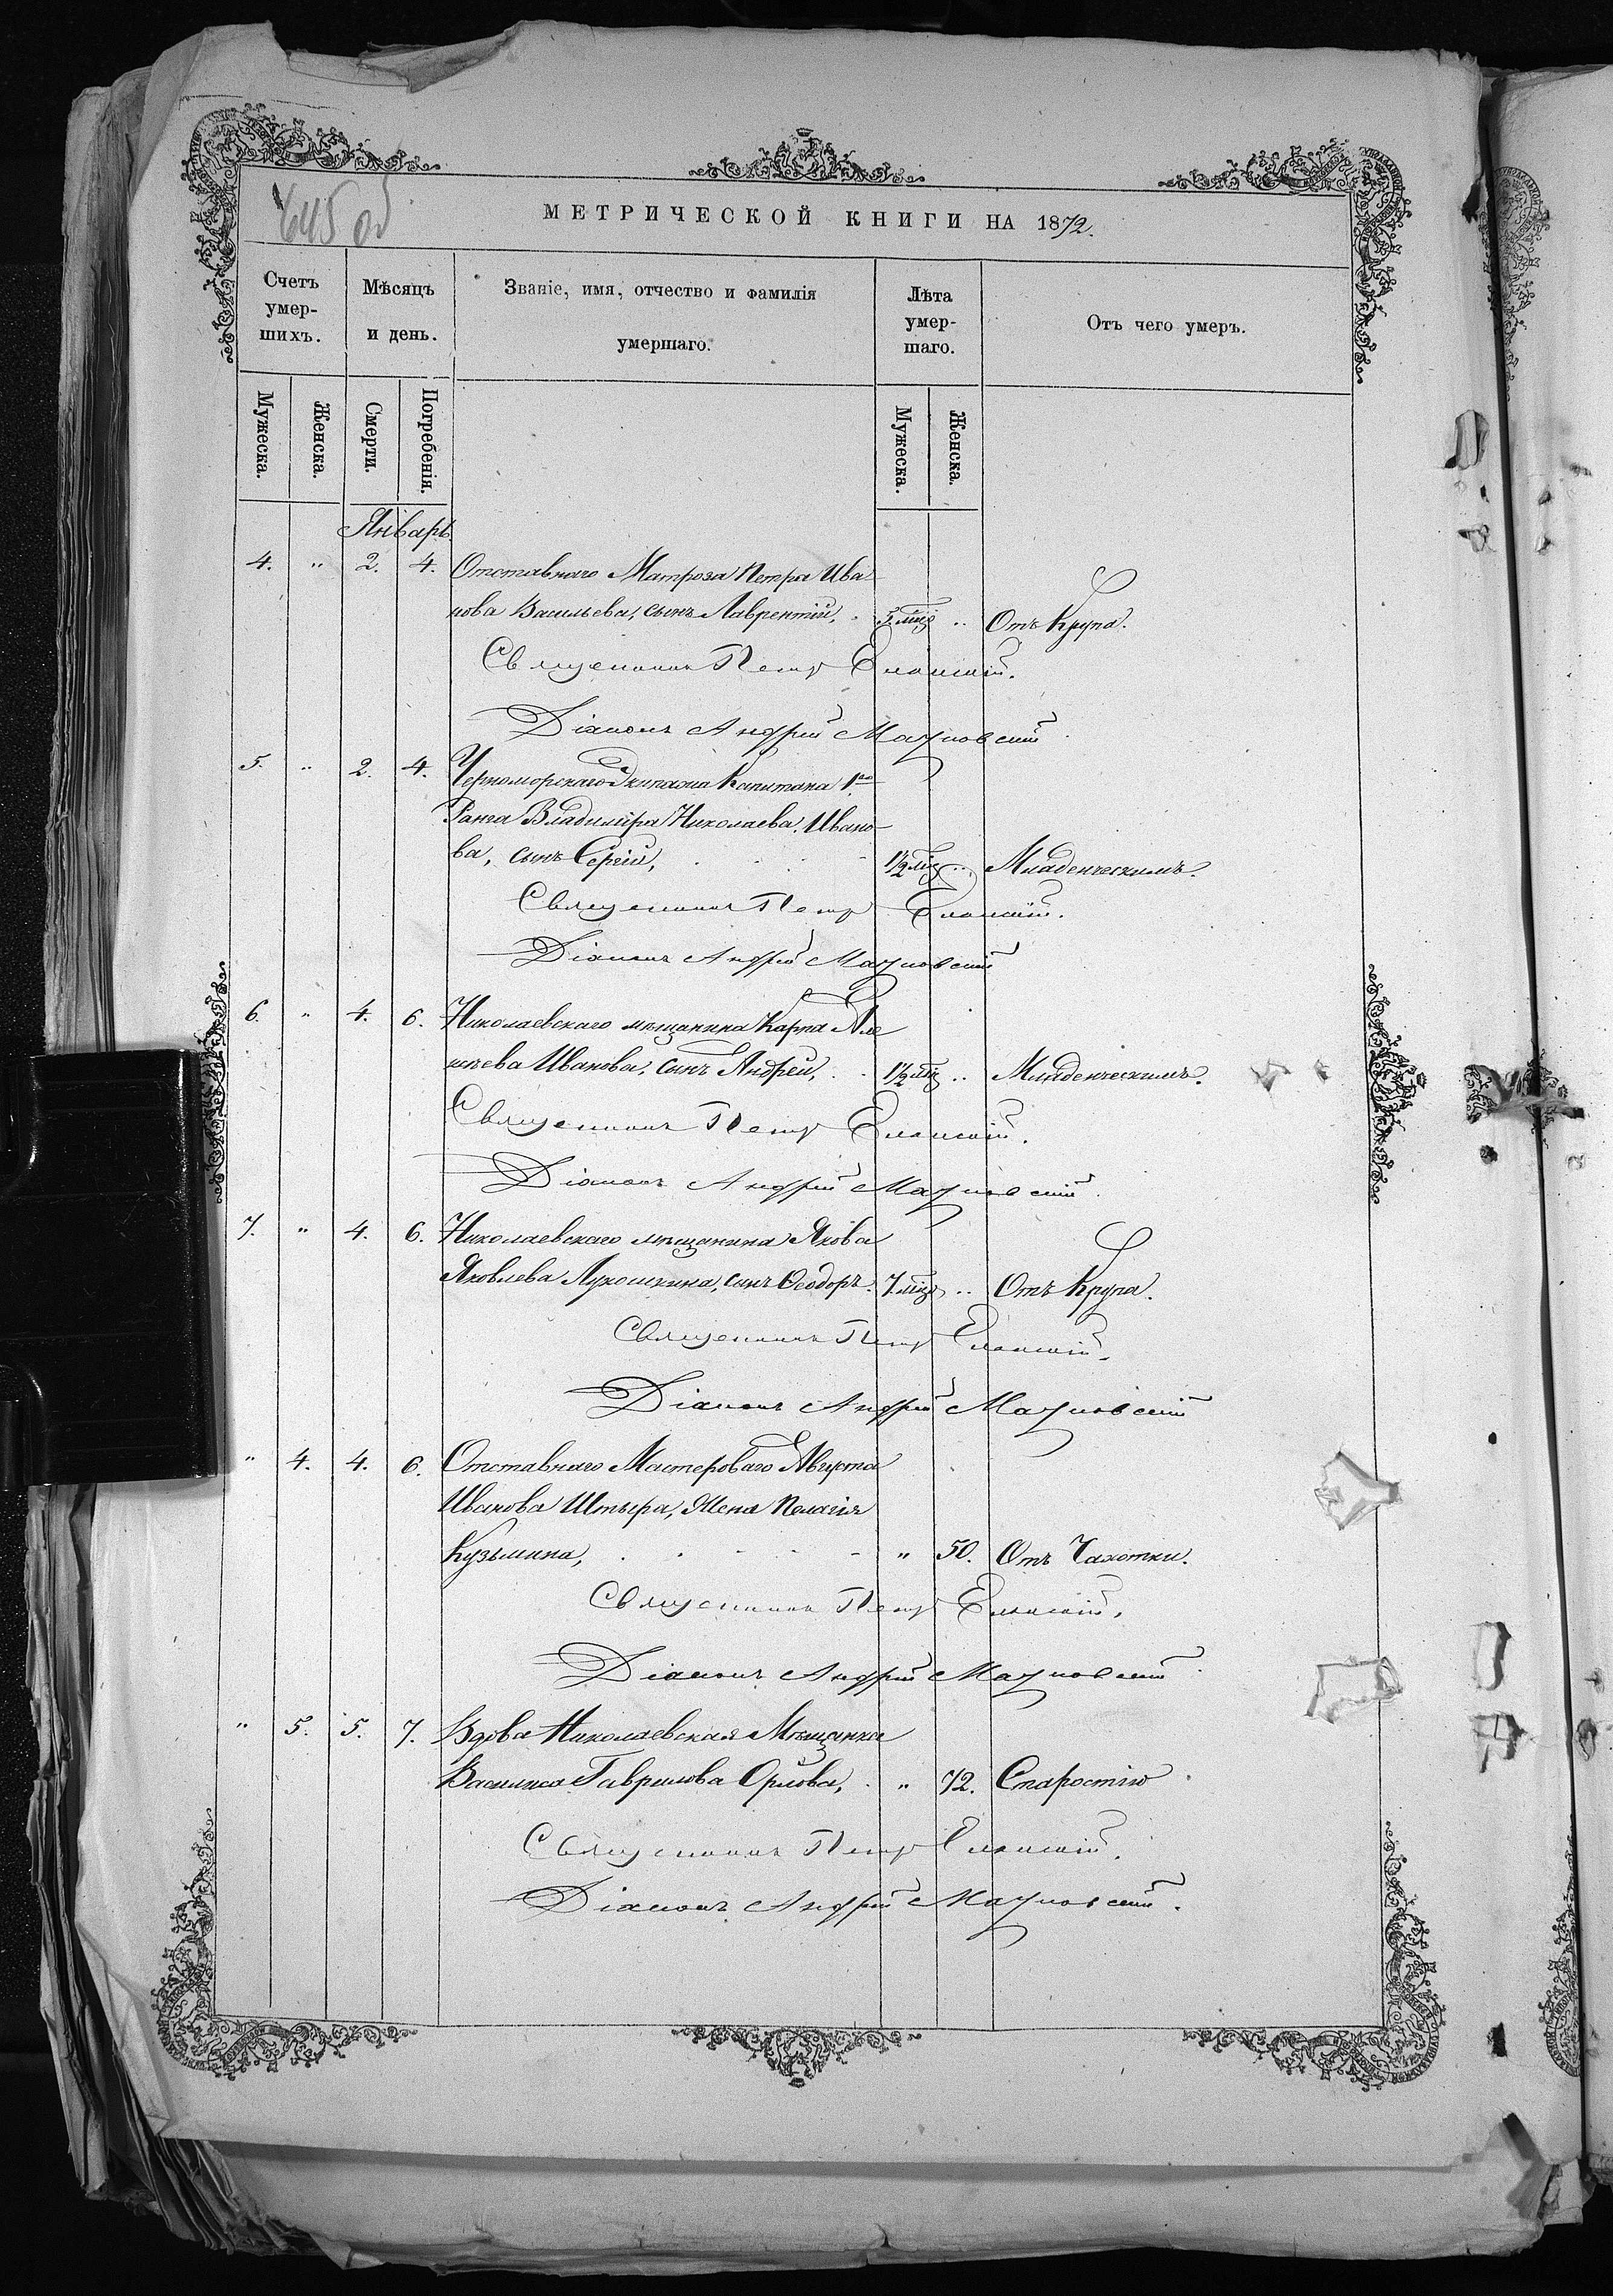 645 об
МЕТРИЧЕСКОЙ КНИГИ НА 1872.
Счетъ умер-шихъ.
Мѣсяцъ и день.
Званіе, имя, отчество и фамилія умершаго.
Лѣта умер-шаго.
Отъ чего умеръ.
Мужеска.
Женска.
Смерти.
Погребенія.
Мужеска.
Женска.
Январь
4. " 2. 4. Отставнаго Матроза Петра Ива
нова Васильева, сынъ Лаврентій, 5 мѣс .. Отъ Крупа.
Священникъ Петръ Еланскій.
Діаконъ Андрей
5. " 2. 4. Черноморскаго Экипажа Капитана 1го
Ранга Владиміра Николаева Ивано-
ва, сынъ Сергій, 1½ мѣс .. Младенческимъ.
Священникъ Петръ Еланскій.
Діаконъ Андрей
6. " 4. 6. Николаевскаго мѣщанина Карпа Але
ксѣева Иванова, сынъ Андрей, 1½ мѣс .. Младенческимъ.
Священникъ Петръ Еланскій.
Діаконъ Андрей
7. " 4. 6. Николаевскаго мѣщанина Якова
Яковлева Лукошкина, сынъ Ѳеодоръ. 7 мѣс .. Отъ Крупа.
Священникъ Петръ Еланскій.
Діаконъ Андрей
" 4. 4. 6. Отставнаго Мастероваго Августа
Иванова Штыра, Жена Пелагія
Кузьмина, " 50. Отъ Чахотки.
Священникъ Петръ Еланскій.
Діаконъ Андрей
" 5. 5. 7. Вдова Николаевская Мѣщанка
Василиса Гаврилова Орлова, " 72. Старостію
Священникъ Петръ Еланскій.
Діаконъ Андрей